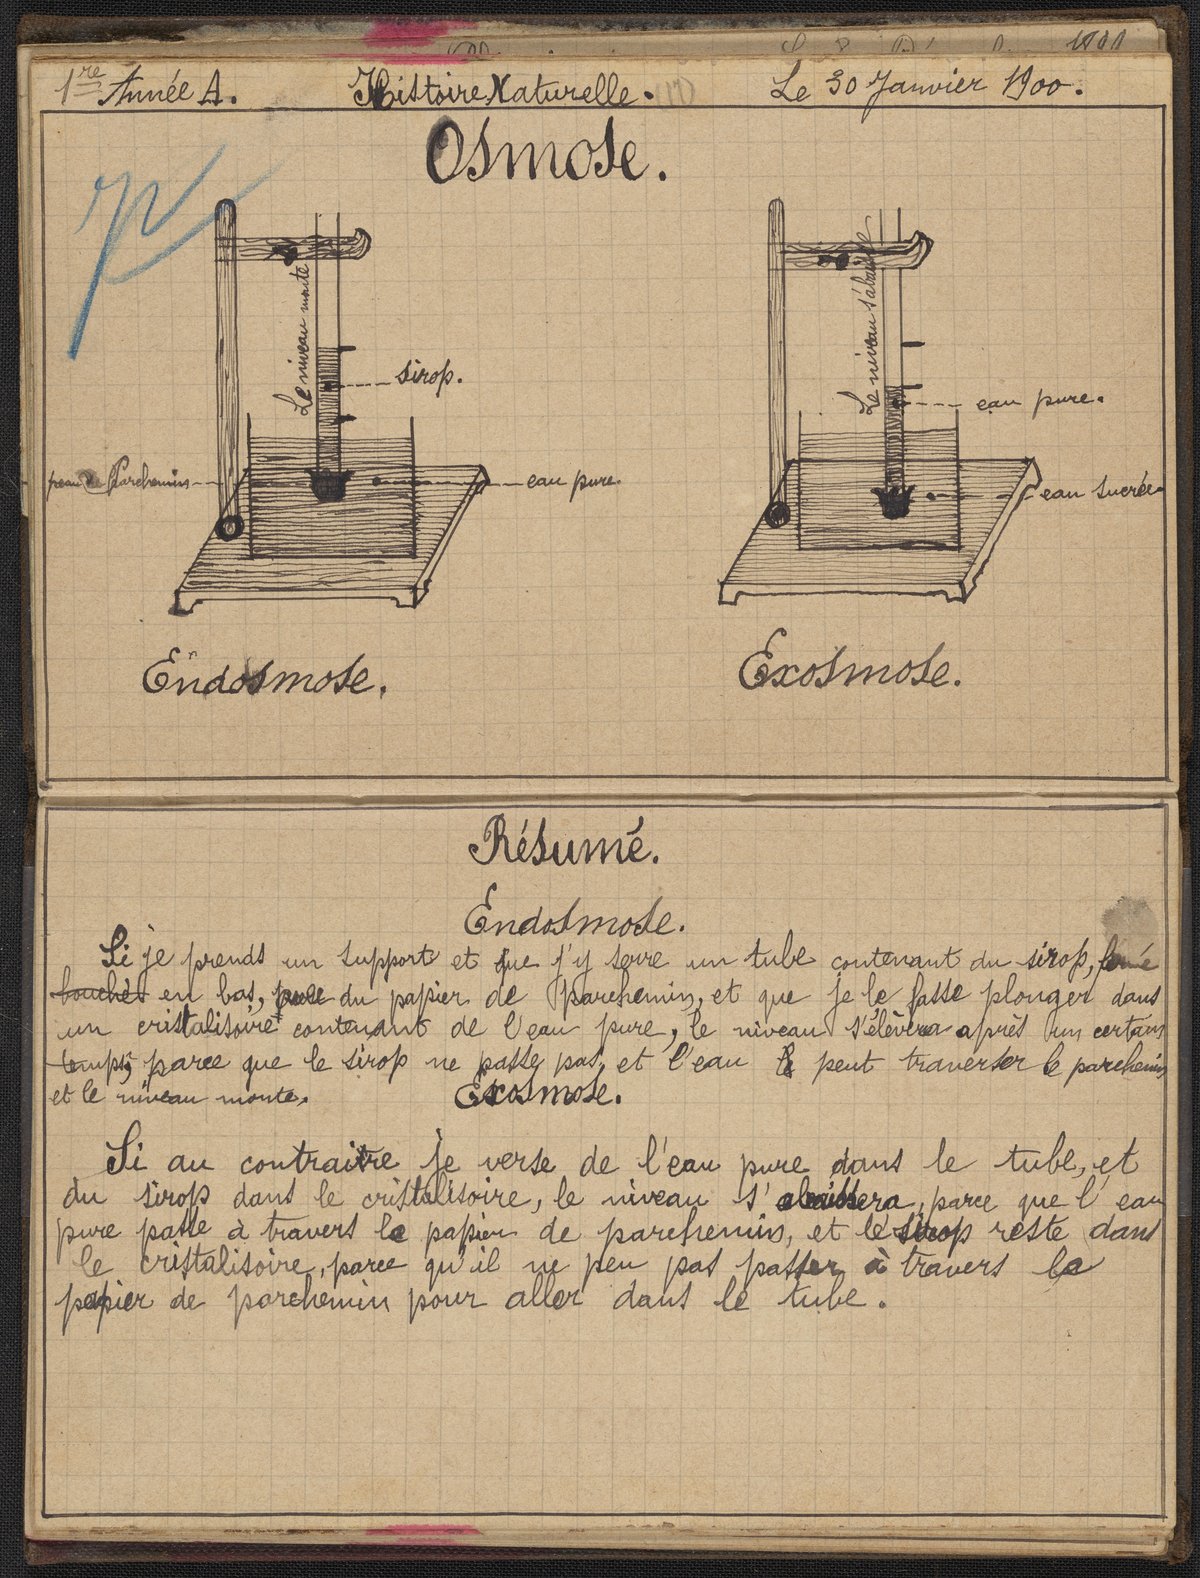 1re Année A. Histoire Naturelle. Le 30 Janvier 1900.
Osmose.
Le niveau monte
sirop.
peau de Parchemin
eau pure.
Le niveau s'abaisse
eau pure.
eau sucrée
Endosmose.
Exosmose.
Résumé.
Endosmose.
Si je prends un support et que j'y serre un tube contenant du sirop, fermé
bouchés en bas, par du papier de parchemin, et que je le fasse plonger dans
un cristalisoire contenant de l'eau pure, le niveau s'élèvera après un certain
temps, parce que le sirop ne passe pas, et l'eau peut traverser le parchemin
et le niveau monte.
Exosmose.
Si au contraire je verse de l'eau pure dans le tube, et
du sirop dans le cristalisoire, le niveau s'abaissera, parce que l'eau
pure passe à travers le papier de parchemin, et le sirop reste dans
le cristalisoire, parce qu'il ne peu pas passer à travers le
papier de parchemin pour aller dans le tube.